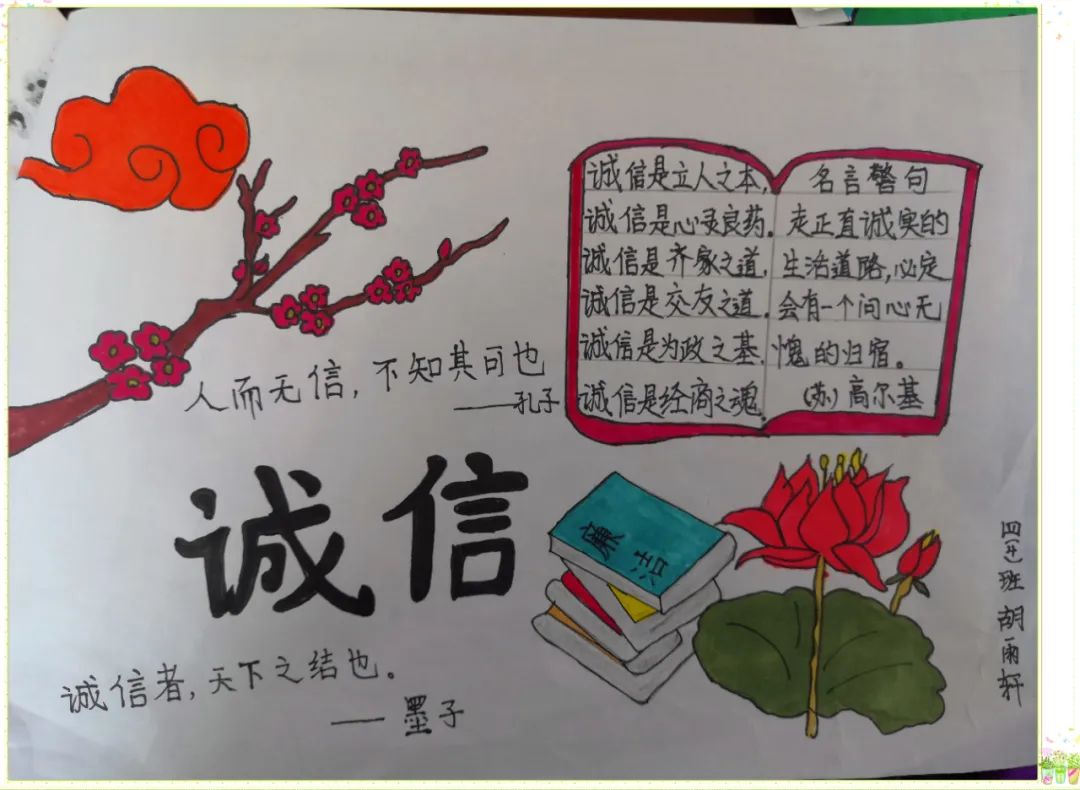 诚信是立人之本,
诚信是心灵良药.
诚信是齐家之道.
诚信是交友之道.
诚信是为政之基.
诚信是经商之魂.
名言警句
走正直诚实的
生活道路,必定
会有一个问心无
愧的归宿。
(苏)高尔基
人而无信,不知其可也
——孔子
诚信
廉洁
诚信者,天下之结也。
——墨子
四(七)班 胡雨轩